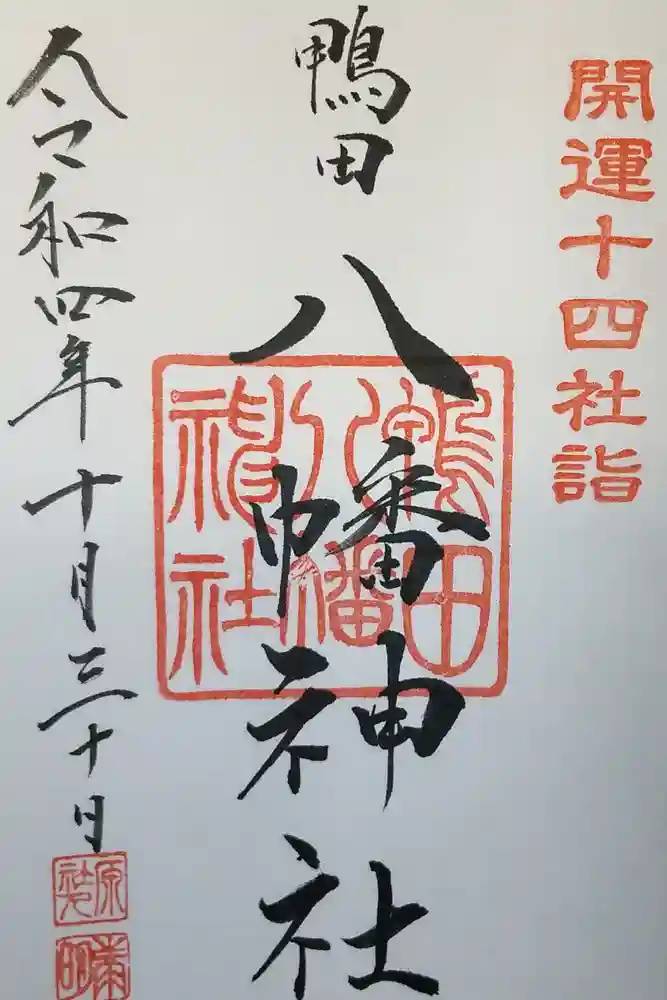 開運十四社詣
鴨田
八幡神社
鴨田
八幡
神社
令和四年十月三十日